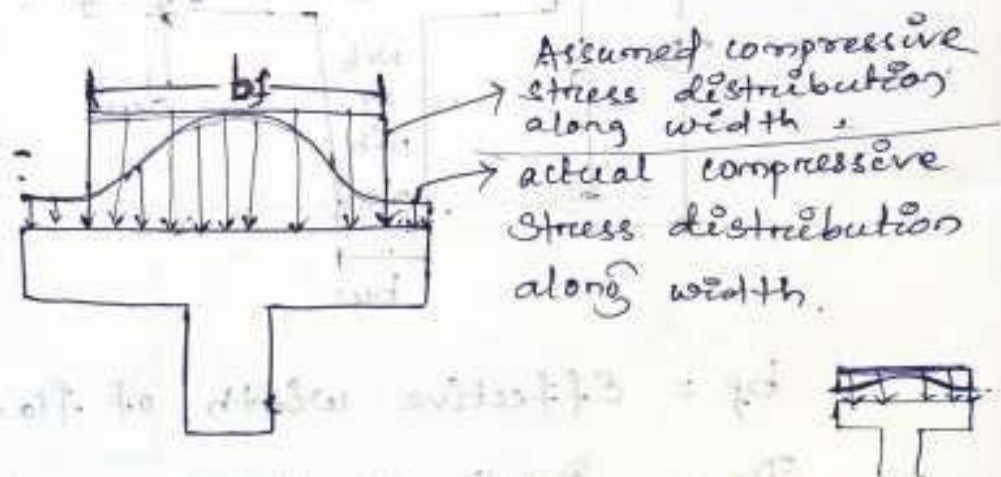 bf
Assumed compressive
stress distribution
along width.
actual compressive
stress distribution
along width.